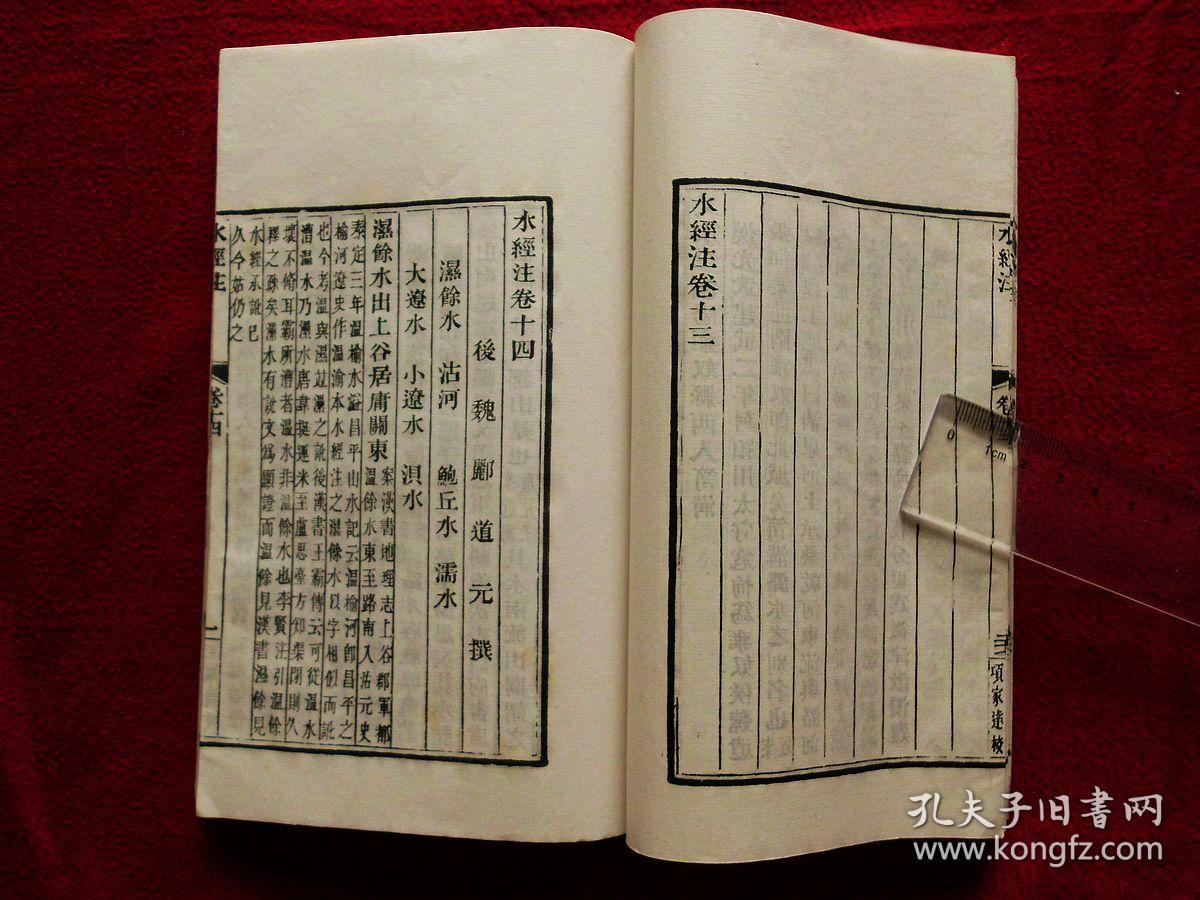 水經注
卷
項家達校
水經注卷十三
水經注卷十四
後魏酈道元撰
濕餘水 沽河 鮑丘水 濡水
大遼水 小遼水 浿水
濕餘水出上谷居庸關東
案漢書地理志上谷郡軍都
溫餘水東至路南入沽元史
泰定三年溫榆水溢昌平山水記云溫榆河卽昌平之
榆河遼史作溫渝本水經注之濕餘水以字相似而訛
也今考溫與濕竝㶟之訛後漢書王霸傳云可從溫水
漕溫水乃㶟水唐韋挺運米至盧思臺方知渠閉則久
堙不脩耳霸所漕者溫水非溫餘水也李賢注引溫餘
釋之疎矣㶟水有說文爲顯證而溫餘見漢書濕餘見
水經承訛已
久今姑仍之
水經注
卷十四
一
0 1cm 2 3 4 5 6
孔夫子旧書网
www.kongfz.com